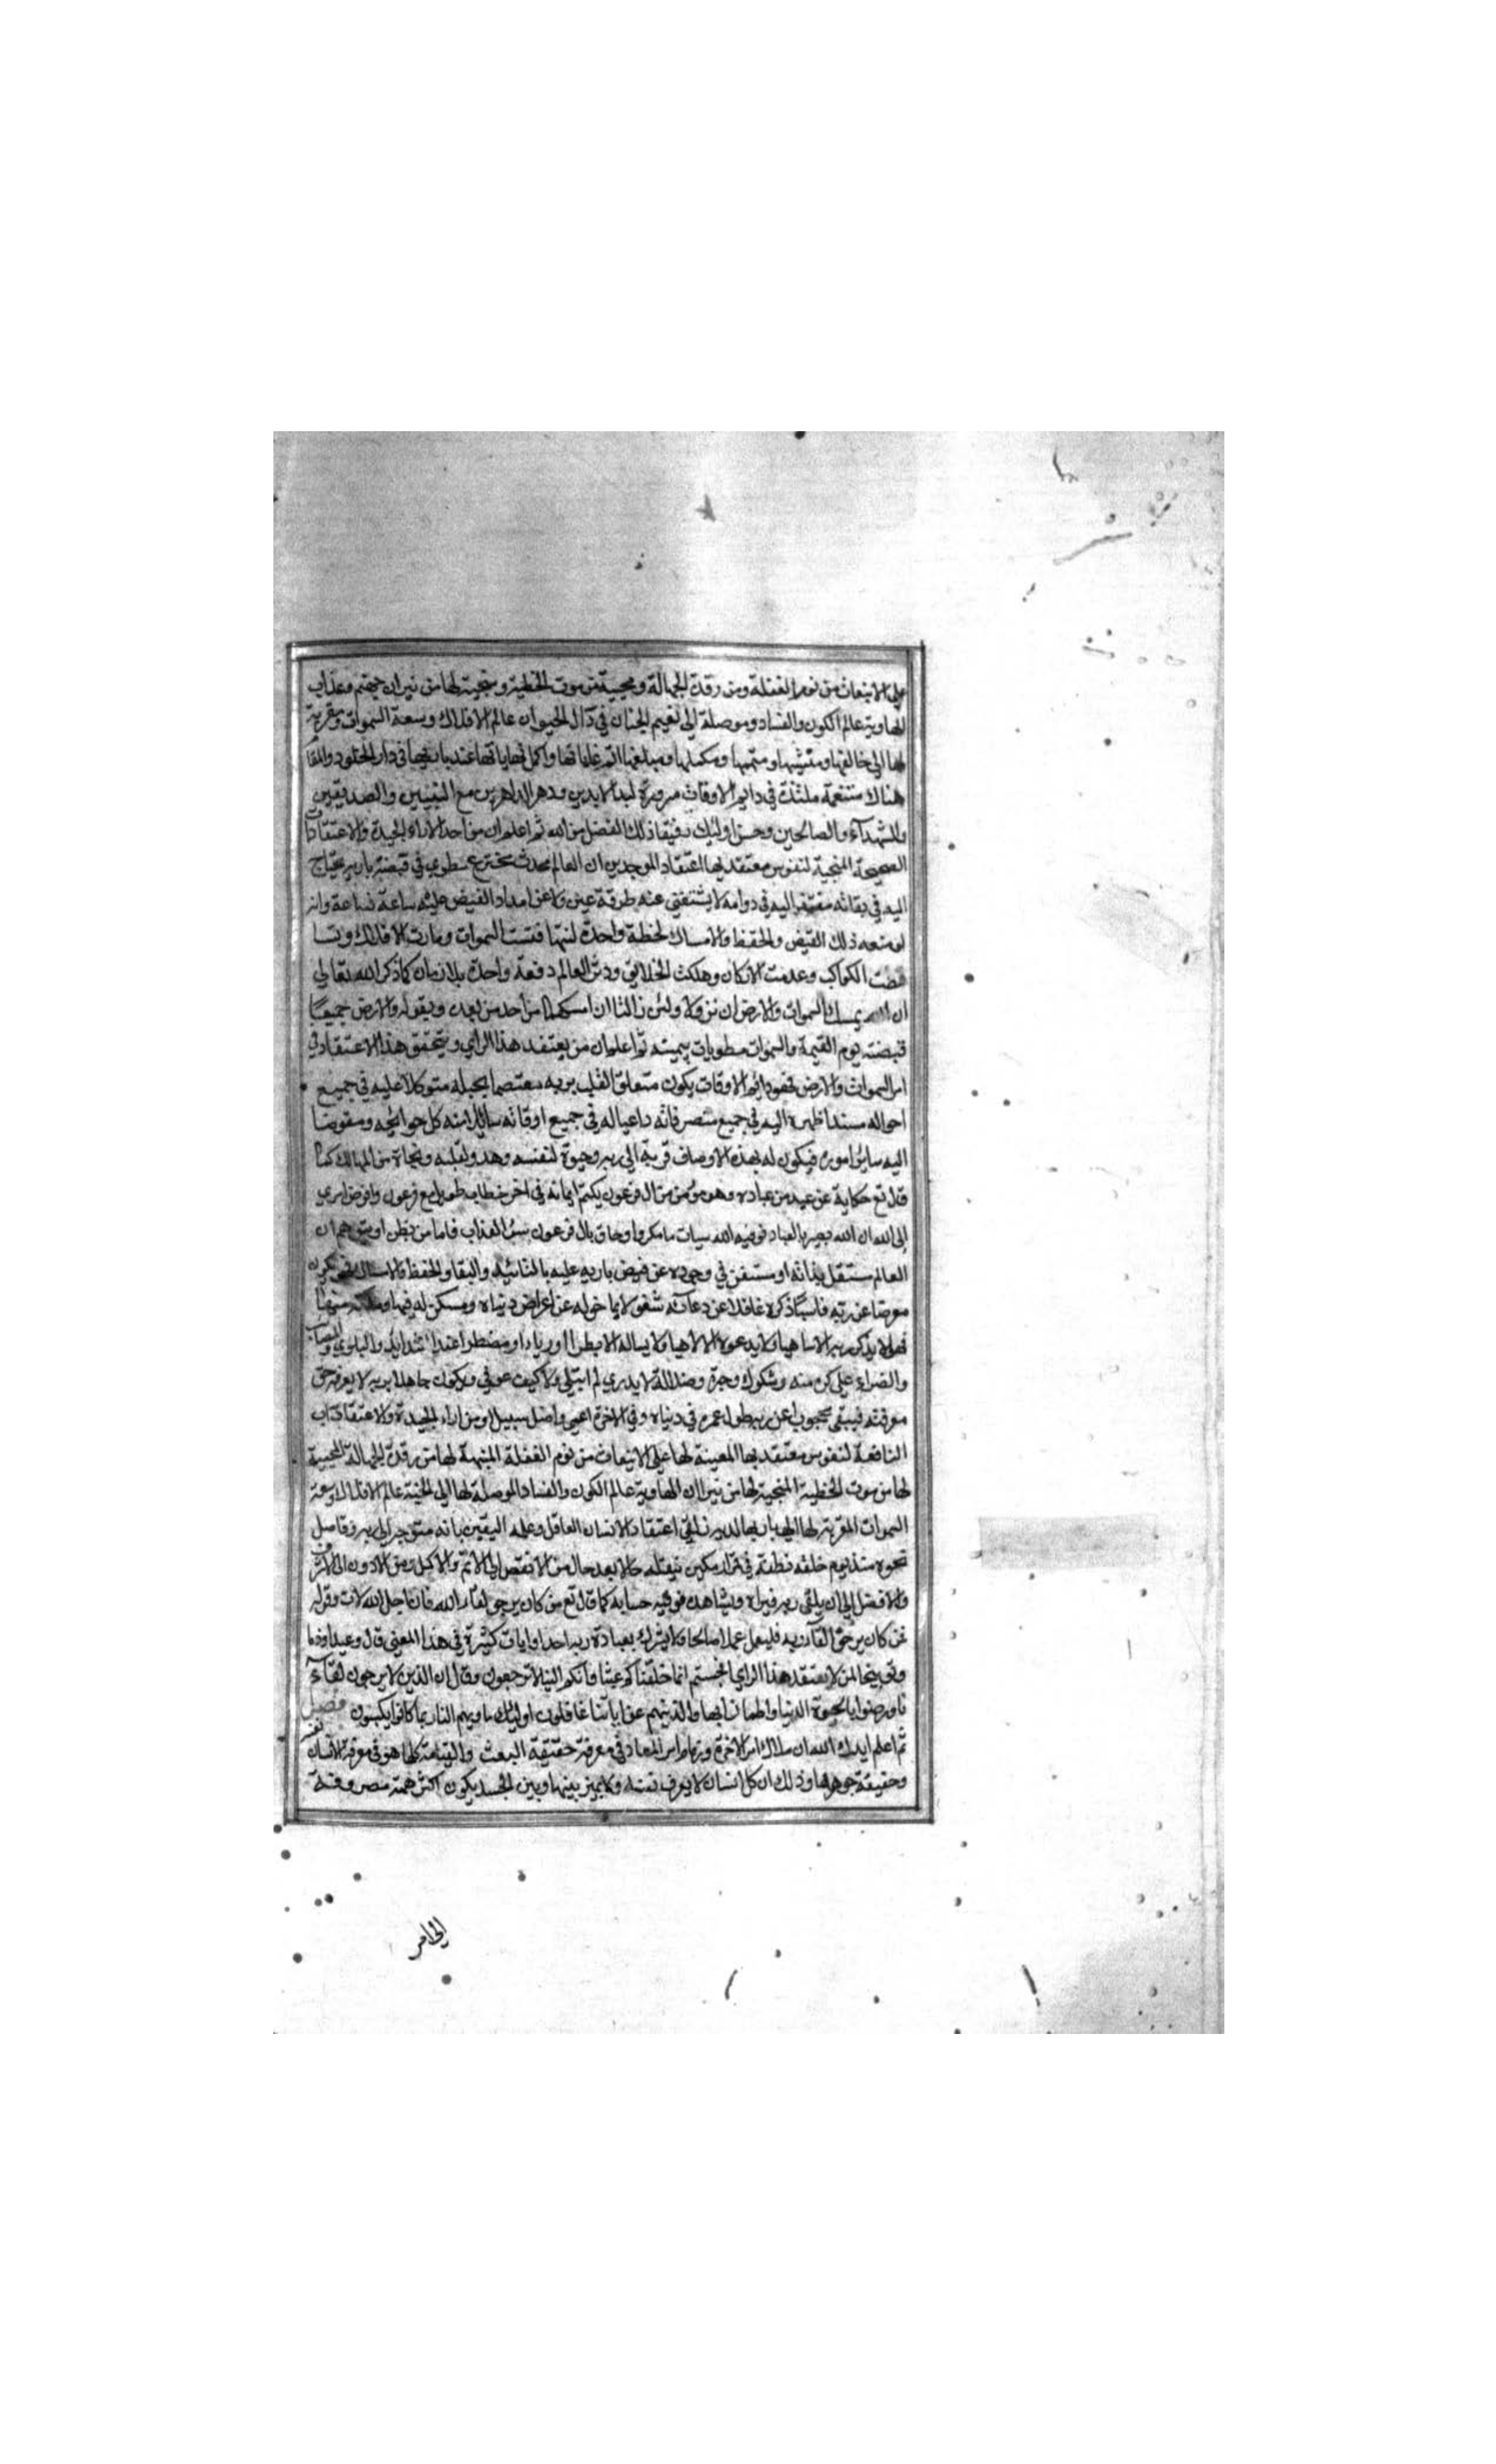 على الانبعاث من نوم الغفلة ومن رقدة الجهالة ومحيية من موت الخطية ومنجية لها من نيران جهنم وعذاب
الهاوية عالم الكون والفساد وموصلة الى نعيم الجنان في دار الحيوان عالم الافلاك وسعة السموات ومقربة
لها الى خالقها ومنشيها ومتممها ومكملها ومبلغها اتم غاياتها واكمل نهاياتها عند باريها في دار الخلود والبقا
هناك متنعمة ملتذة في دايم الاوقات مسرورة ابد الابدين ودهر الداهرين مع النبيين والصديقين
والشهدآء والصالحين وحسن اوليك رفيقا ذلك الفضل من الله ثم اعلم ان من احد الاراء الجيدة والاعتقادات
الصحيحة المنجية لنفوس معتقديها اعتقاد الموحدين ان العالم محدث مخترع مطوي في قبضة باريه يحتاج
اليه في بقائه مفتقر اليه في دوامه لا يستغنى عنه طرفة عين ولا عن امداد الفيض عليه ساعة فساعة وانه
لو منعه ذلك الفيض والحفظ والامساك لحظة واحدة لتهافتت السموات وبادت الافلاك وتسا
قطت الكواكب وعدمت الاركان وهلكت الخلائق ودثر العالم دفعة واحدة بلا زمان كما ذكر الله تعالى
ان الله يمسك السموات والارض ان تزولا ولئن زالتا ان امسكهما من احد من بعده وبقوله والارض جميعًا
قبضته يوم القيمة والسموات مطويات بيمينه ثم اعلم ان من يعتقد هذا الراي ويتحقق هذا الاعتقاد في
امر السموات والارض فهو دايم الاوقات يكون متعلق القلب بربه معتصما بحبله متوكلا عليه في جميع
احواله مسندا ظهره اليه في جميع متصرفاته داعيا له في جميع اوقاته سائلا منه كل حوائجه ومفوضا
اليه سائر اموره فيكون له بهذه الاوصاف قربة الى ربه وحيوة لنفسه وهدو لقلبه ونجاة من المهالك كما
قال تع حكاية عن عبد من عباده وهو مؤمن من ال فرعون يكتم ايمانه في اخر خطاب طويل مع فرعون وافوض امري
الى الله ان الله بصير بالعباد فوقيه الله سيات ما مكروا وحاق بال فرعون سوء العذاب فاما من يظن او يتوهم ان
العالم مستقل بذاته او مستغن في وجوده عن فيض باريه عليه بالتائيد والبقا والحفظ والامساك فهو يكون
معرضا عن ربه ناسيًا ذكره غافلا عن دعائه مشغولا بما خوله عن اعراض دنياه ومسكن له فيها وملكه منها
فهو لا يذكر ربه الا ساهيا ولا يدعوه الا لاهيا ولا يساله الا بطرا او رياء او مضطرا عند الشدائد والبلوى والمصائب
والضراء على كره منه وشكوك وحيرة وضلالة لا يدري لم ابتلى ولا كيف عوفي ويكون جاهلا بربه لا يعرفه حق
معرفته فيبقى محجوبا عن ربه طول عمره في دنياه وفي الاخرة اعمى واضل سبيلا ومن اراء الجيدة والاعتقادات
النافعة لنفوس معتقديها المعينة لها على الانبعاث من نوم الغفلة المنبهة لها من رقدة الجهالة المحيية
لها من موت الخطية المنجية لها من نيران الهاوية عالم الكون والفساد الموصلة لها الى الجنة عالم الافلاك وسعة
السموات المقربة لها الى باريها لديه زلفى اعتقاد الانسان العاقل وعلمه اليقين بانه متوجه الى ربه وقاصد
نحوه منذ يوم خلقه نطفة في قرار مكين بنقله حالا بعد حال من الانقص الى الاتم والاكمل ومن الادون الى الاشرف
والافضل الى ان يلقى ربه فيراه ويشاهده فوفيه حسابه كما قال تع من كان يرجو لقاء الله فان اجل الله لات وقوله
فمن كان يرجو القاء ربه فليعمل عملا صالحا ولا يشرك بعبادة ربه احدا وايات كثيرة في هذا المعنى قال وعيدا وذما
وتوبيخا لمن لا يعتقد هذا الراي افحسبتم انما خلقناكم عبثا وانكم الينا لا ترجعون وقال ان الذين لا يرجون لقآء
نا ورضوا بالحيوة الدنيا واطمانوا بها والذين هم عن اياتنا غافلون اوليك ماويهم النار بما كانوا يكسبون فصل
ثم اعلم ايدك الله ان ملاك امر الاخرة وزمام امر المعاد في معرفة حقيقة البعث والقيامة كلها هو في معرفة الانسان نفسه
وحقيقة جوهرها وذلك ان كل انسان لا يعرف نفسه ولا يميز بينها وبين الجسد يكون اكثر همته مصروفة
الى امر